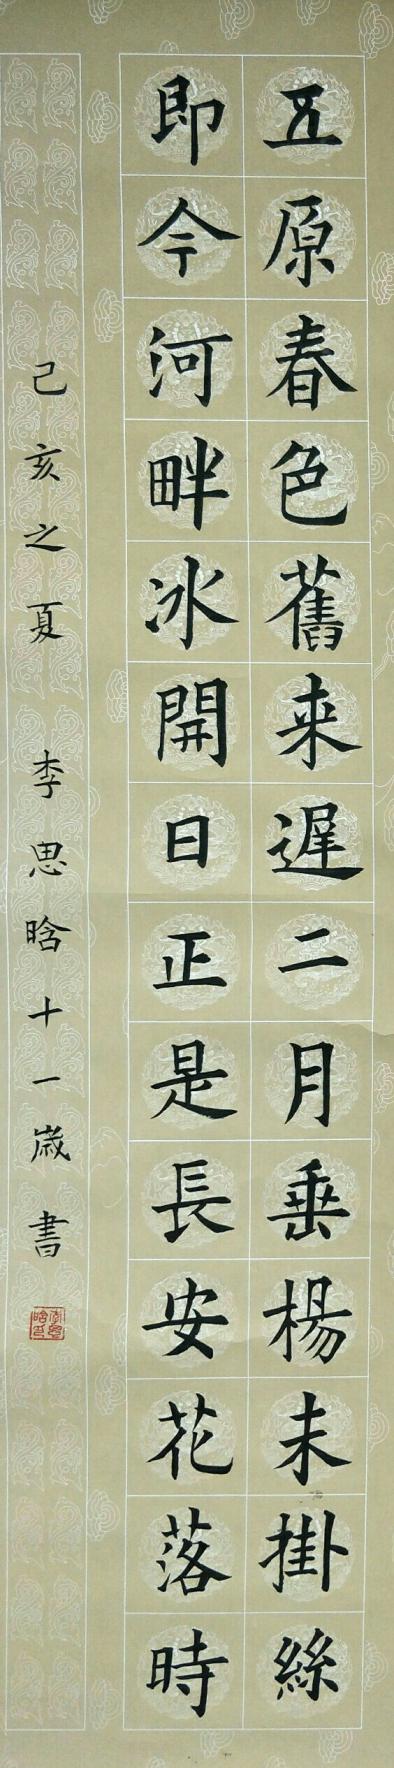 五原春色舊来遲二月垂楊未掛絲
即今河畔冰開日正是長安花落時
己亥之夏 李思晗十一歲書